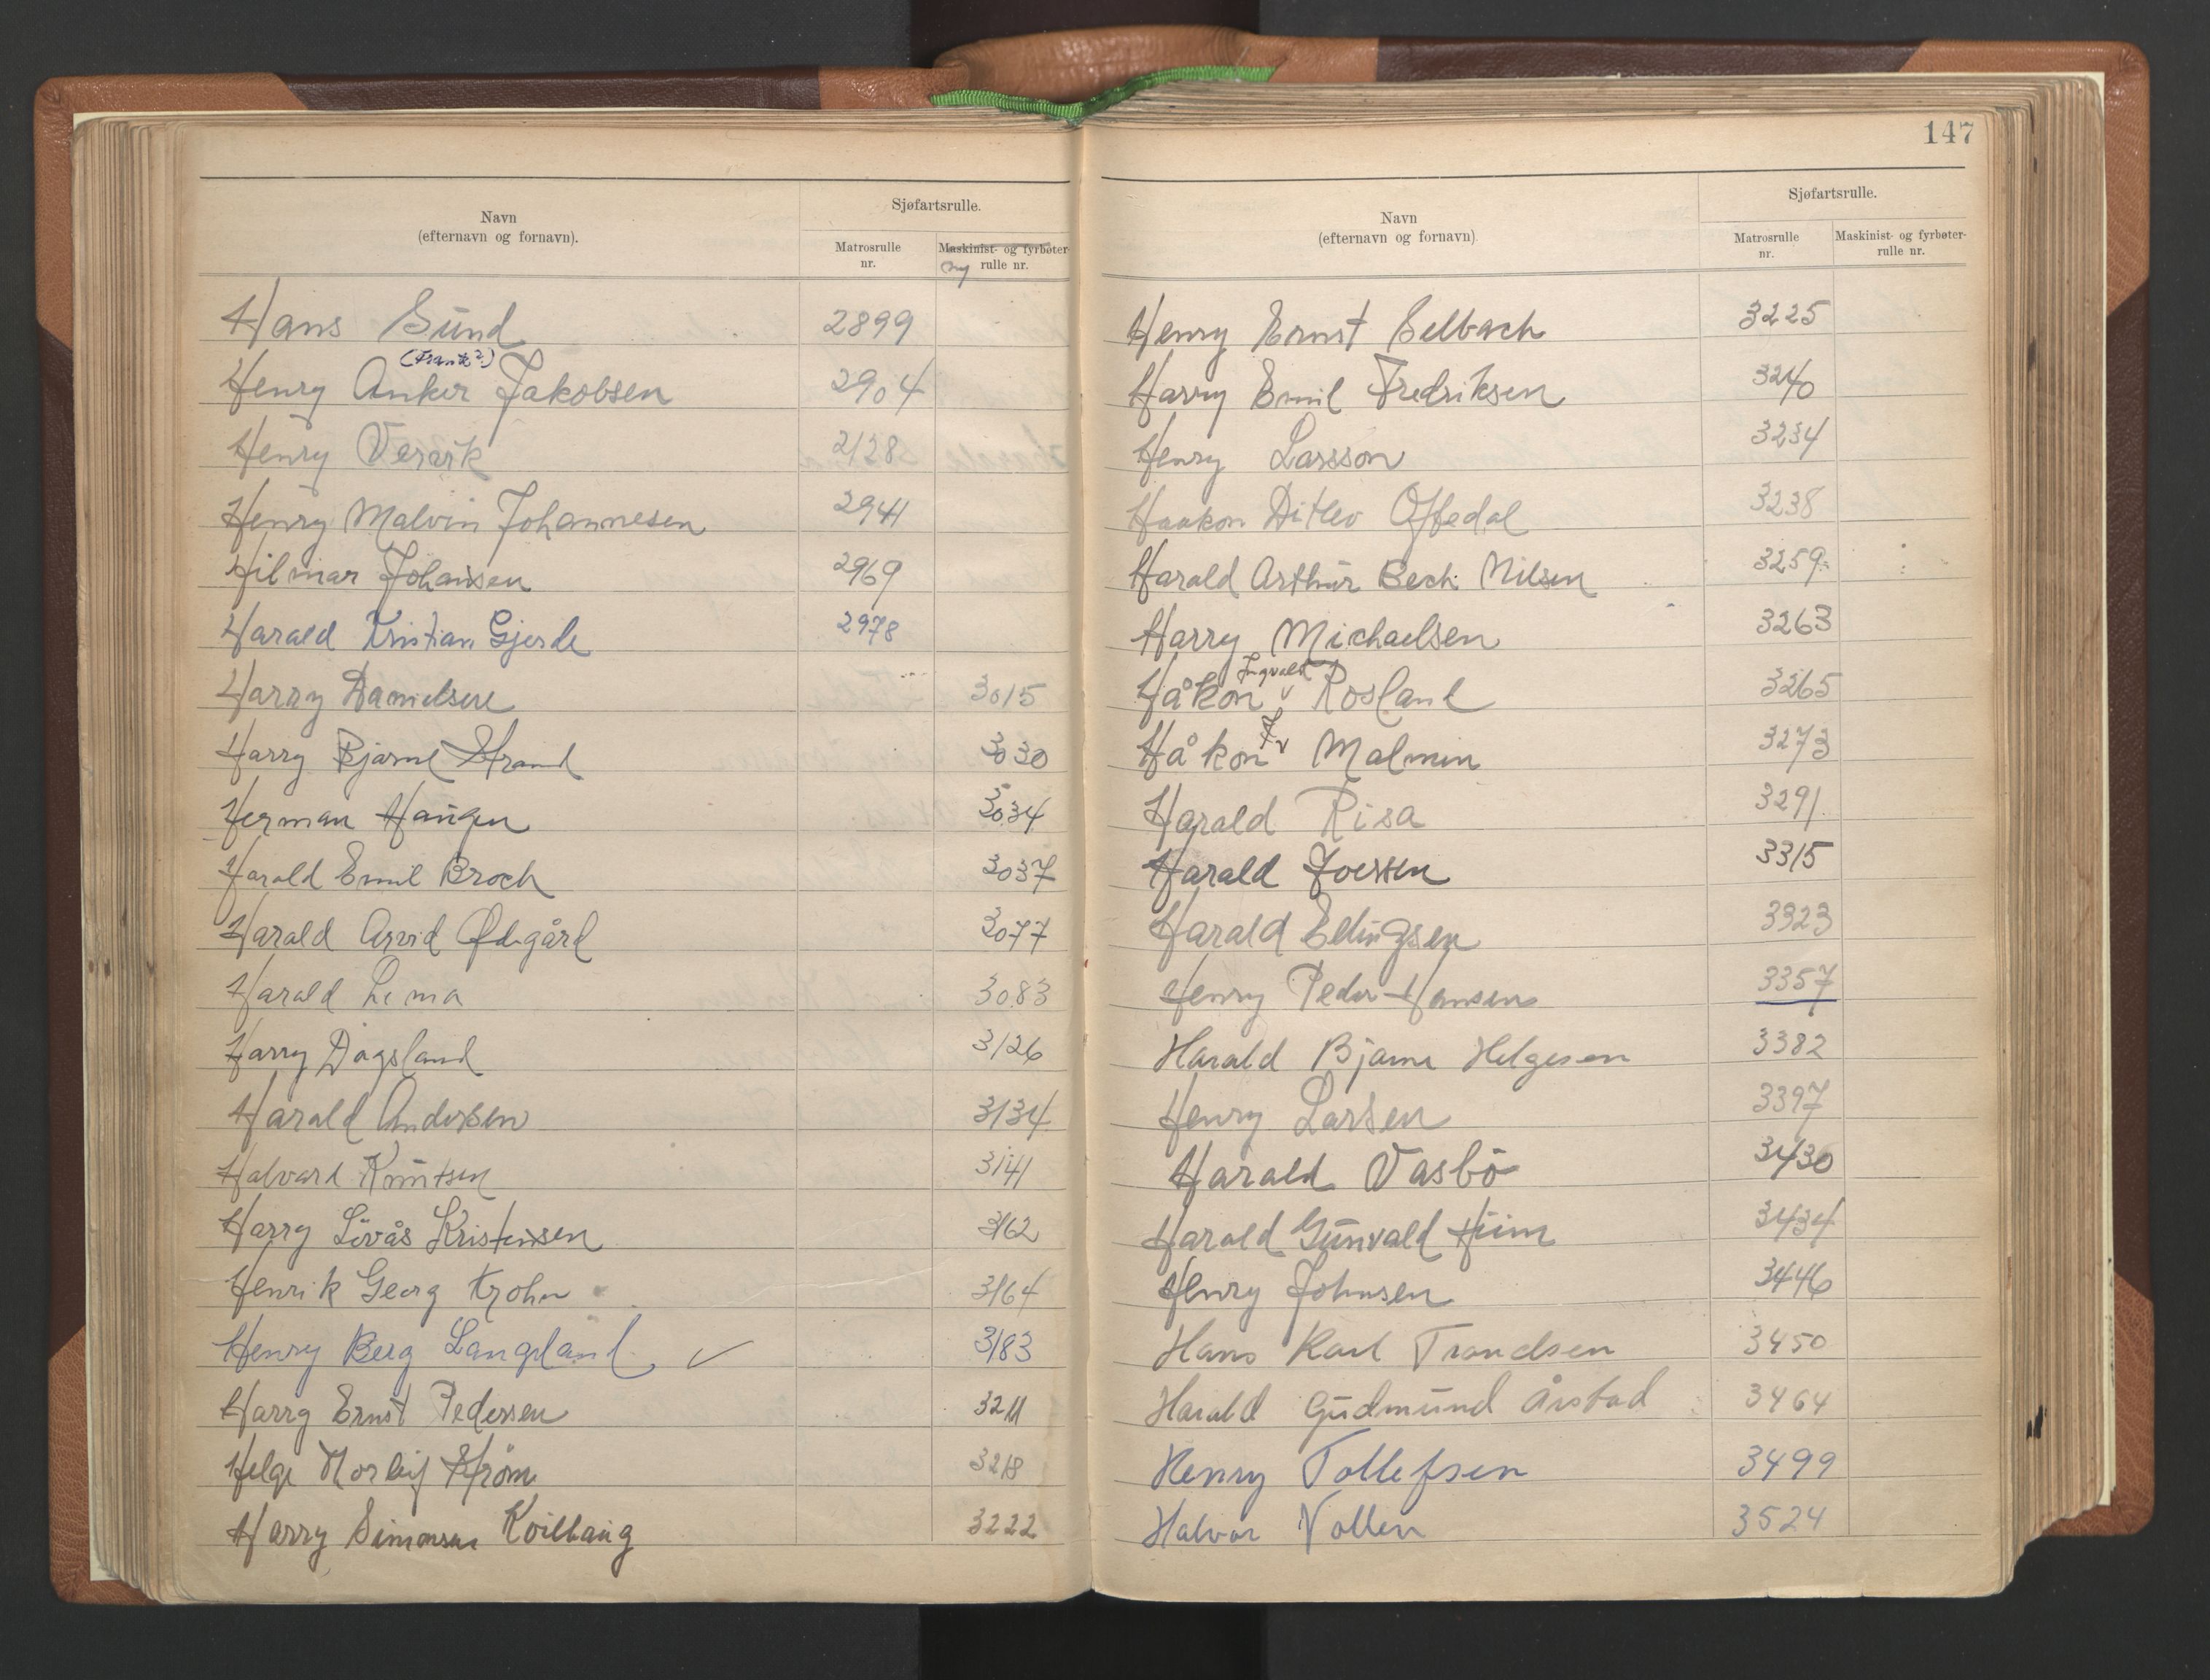 Navn
(efternavn og fornavn).
Sjøfartsrulle.
Matrosrulle nr.
Maskinist- og fyrbøter-
ny rulle nr.
Hans Sund 2899
(Frantz?)
Henry Anker Jakobsen 2904
Henry Verark 2128
Henry Malvin Johannesen 2941
Hilmar Johansen 2969
Harald Kristian Gjerde 2978
Harry Danielsen 3015
Harry Bjarne Strand 3030
Herman Haugen 3034
Harald Emil Broch 3037
Harald Arvid Ødegård 3077
Harald Lima 3083
Harry Dagsland 3126
Harald Andersen 3134
Halvard Knutsen 3141
Harry Lövås Kristensen 3162
Henrik Georg Krohn 3164
Henry Berg Langeland ✓ 3183
Harry Ernst Pedersen 3211
Helge Norleif Strøm 3218
Harry Simonsen Koilhaug 3222
147
Navn
(efternavn og fornavn).
Sjøfartsrulle.
Matrosrulle nr.
Maskinist- og fyrbøter-
rulle nr.
Henry Ernst Selbach 3225
Harry Emil Fredriksen 3240
Henry Larsson 3234
Haakon Ditlev Oftedal 3238
Harald Arthur Beck Nilsen 3259
Harry Michaelsen 3263
Ingvald
Håkon Rosland 3265
Håkon J. Malmin 3273
Harald Risa 3291
Harald Iversen 3315
Harald Edingsen 3323
Henry Peder Hansen 3357
Harald Bjarne Helgesen 3382
Henry Larsen 3397
Harald Vasbö 3430
Harald Gunvald Hiim 3434
Henry Johnsen 3446
Hans Karl Trondsen 3450
Harald Gudmund Årstad 3464
Henry Tollefsen 3499
Halvor Vollen 3524